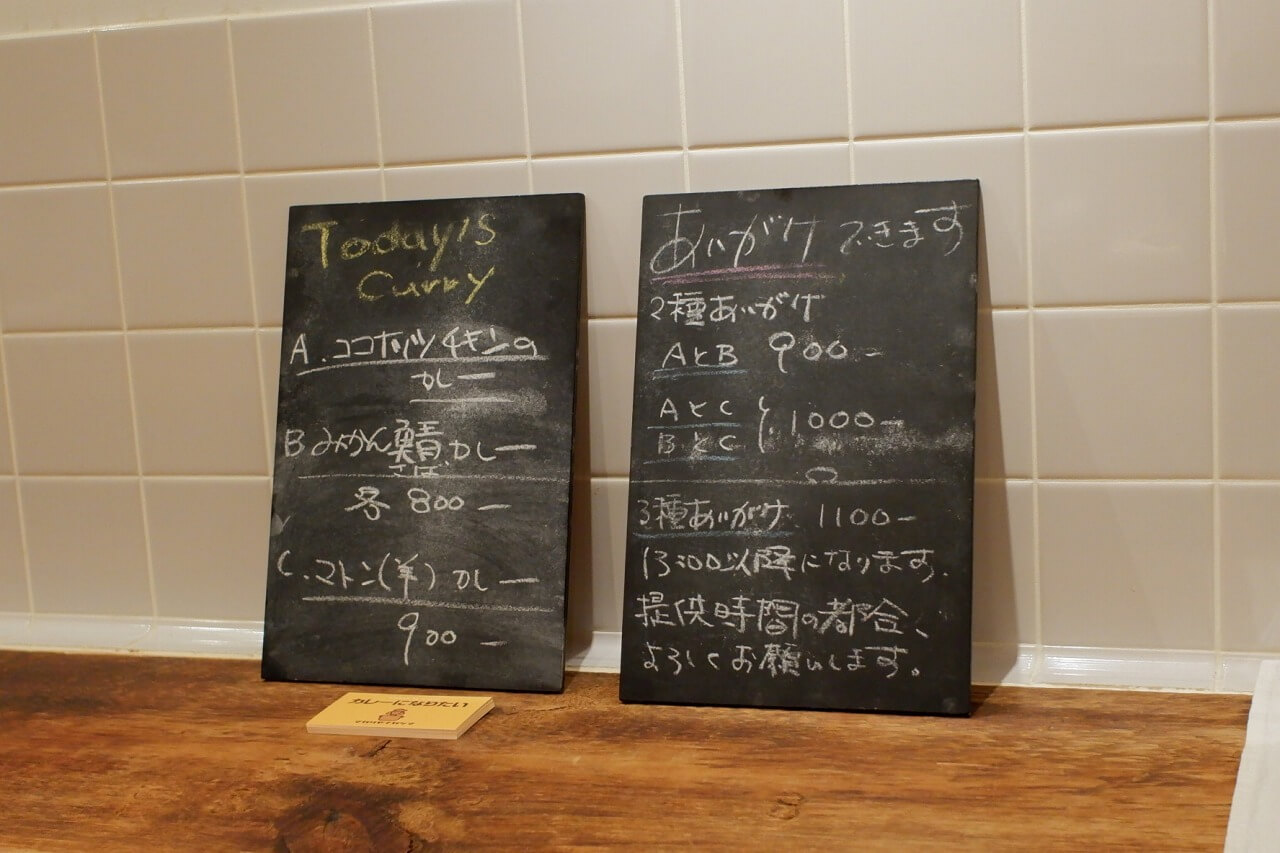 Today's
Curry
A. ココナッツチキンの
カレー
Bみかん鯖カレー
さば
各 800ー
C.マトン(羊)カレー
900ー
カレーになりたい
あいがけ できます
2種あいがけ
AとB 900ー
AとC
BとC 1000ー
3種あいがけ 1100ー
13:00以降になります.
提供時間の都合、
よろしくお願いします。